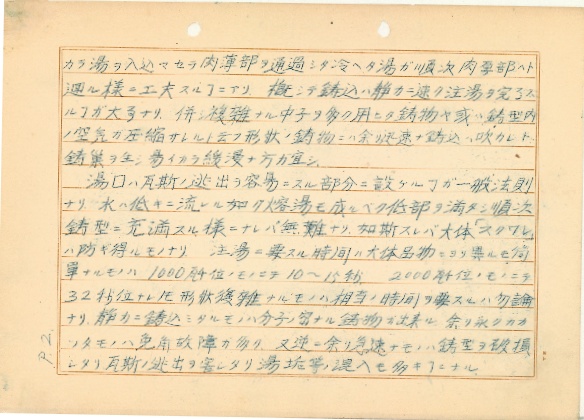 カラ湯ヲ入込マセラ肉薄部ヲ通過シタ冷ヘタ湯ガ順次肉厚部ヘト
廻ル様ニ工夫スルニアリ 概シテ鋳込ハ静カニ速ク注湯ヲ完了ス
ルヿガ大事ナリ、併シ複雑ナル中子ヲ多ク用ヒタ鋳物ヤ或ハ鋳型内
ノ空気ガ圧縮サレル如キ形状ノ鋳物ニハ余リ迅速ナ鋳込ハ吹カレト
鋳巣ヲ生ジ易イカラ緩漫ナ方ガ宜シ
湯口ハ瓦斯ノ逃出ヲ容易ニスル部分ニ設ケルヿガ一般法則
ナリ 水ハ低キニ流レル如ク熔湯モ成ルベク低部ヲ満タシ順次
鋳型ニ充満スル様ニナレバ無難ナリ、如斯スレバ大体「スクワレ」
ハ防ギ得ルモノナリ 注湯ニ要スル時間ハ大体品物ニヨリ異ルモ簡
単ナルモノハ 1000瓩位ノモノニテ10〜15秒、2000瓩位ノモノニテ
32秒位ナレ𪜈形状複雑ナルモノハ相当ノ時間ヲ要スルハ勿論
ナリ、静カニ鋳込ミタルモノハ分子ノ密ナル鋳物ガ出来ル、余リ永クカカ
ツタモノハ兎角故障ガ多ク 又逆ニ余リ急速ナモノハ鋳型ヲ破損
シタリ瓦斯ノ逃出ヲ害シタリ湯垢等ノ混入モ多キヿニナル
P.2.